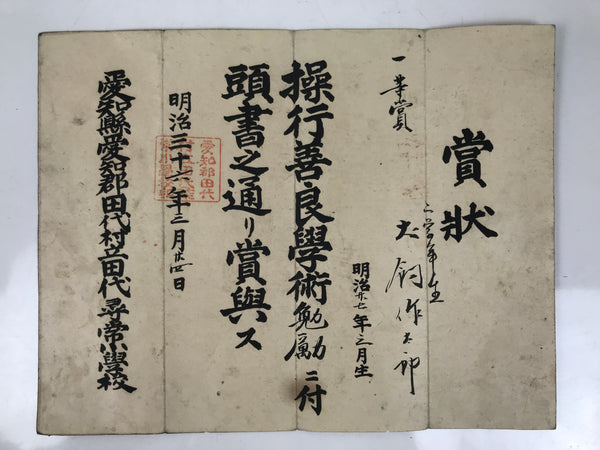 賞狀
一等賞
二学年生
明治廿七年三月生
操行善良學術勉励ニ付
頭書之通リ賞與ス
明治三十六年三月廿四日
愛知縣愛知郡田代村立田代尋常小學校
愛知郡田代